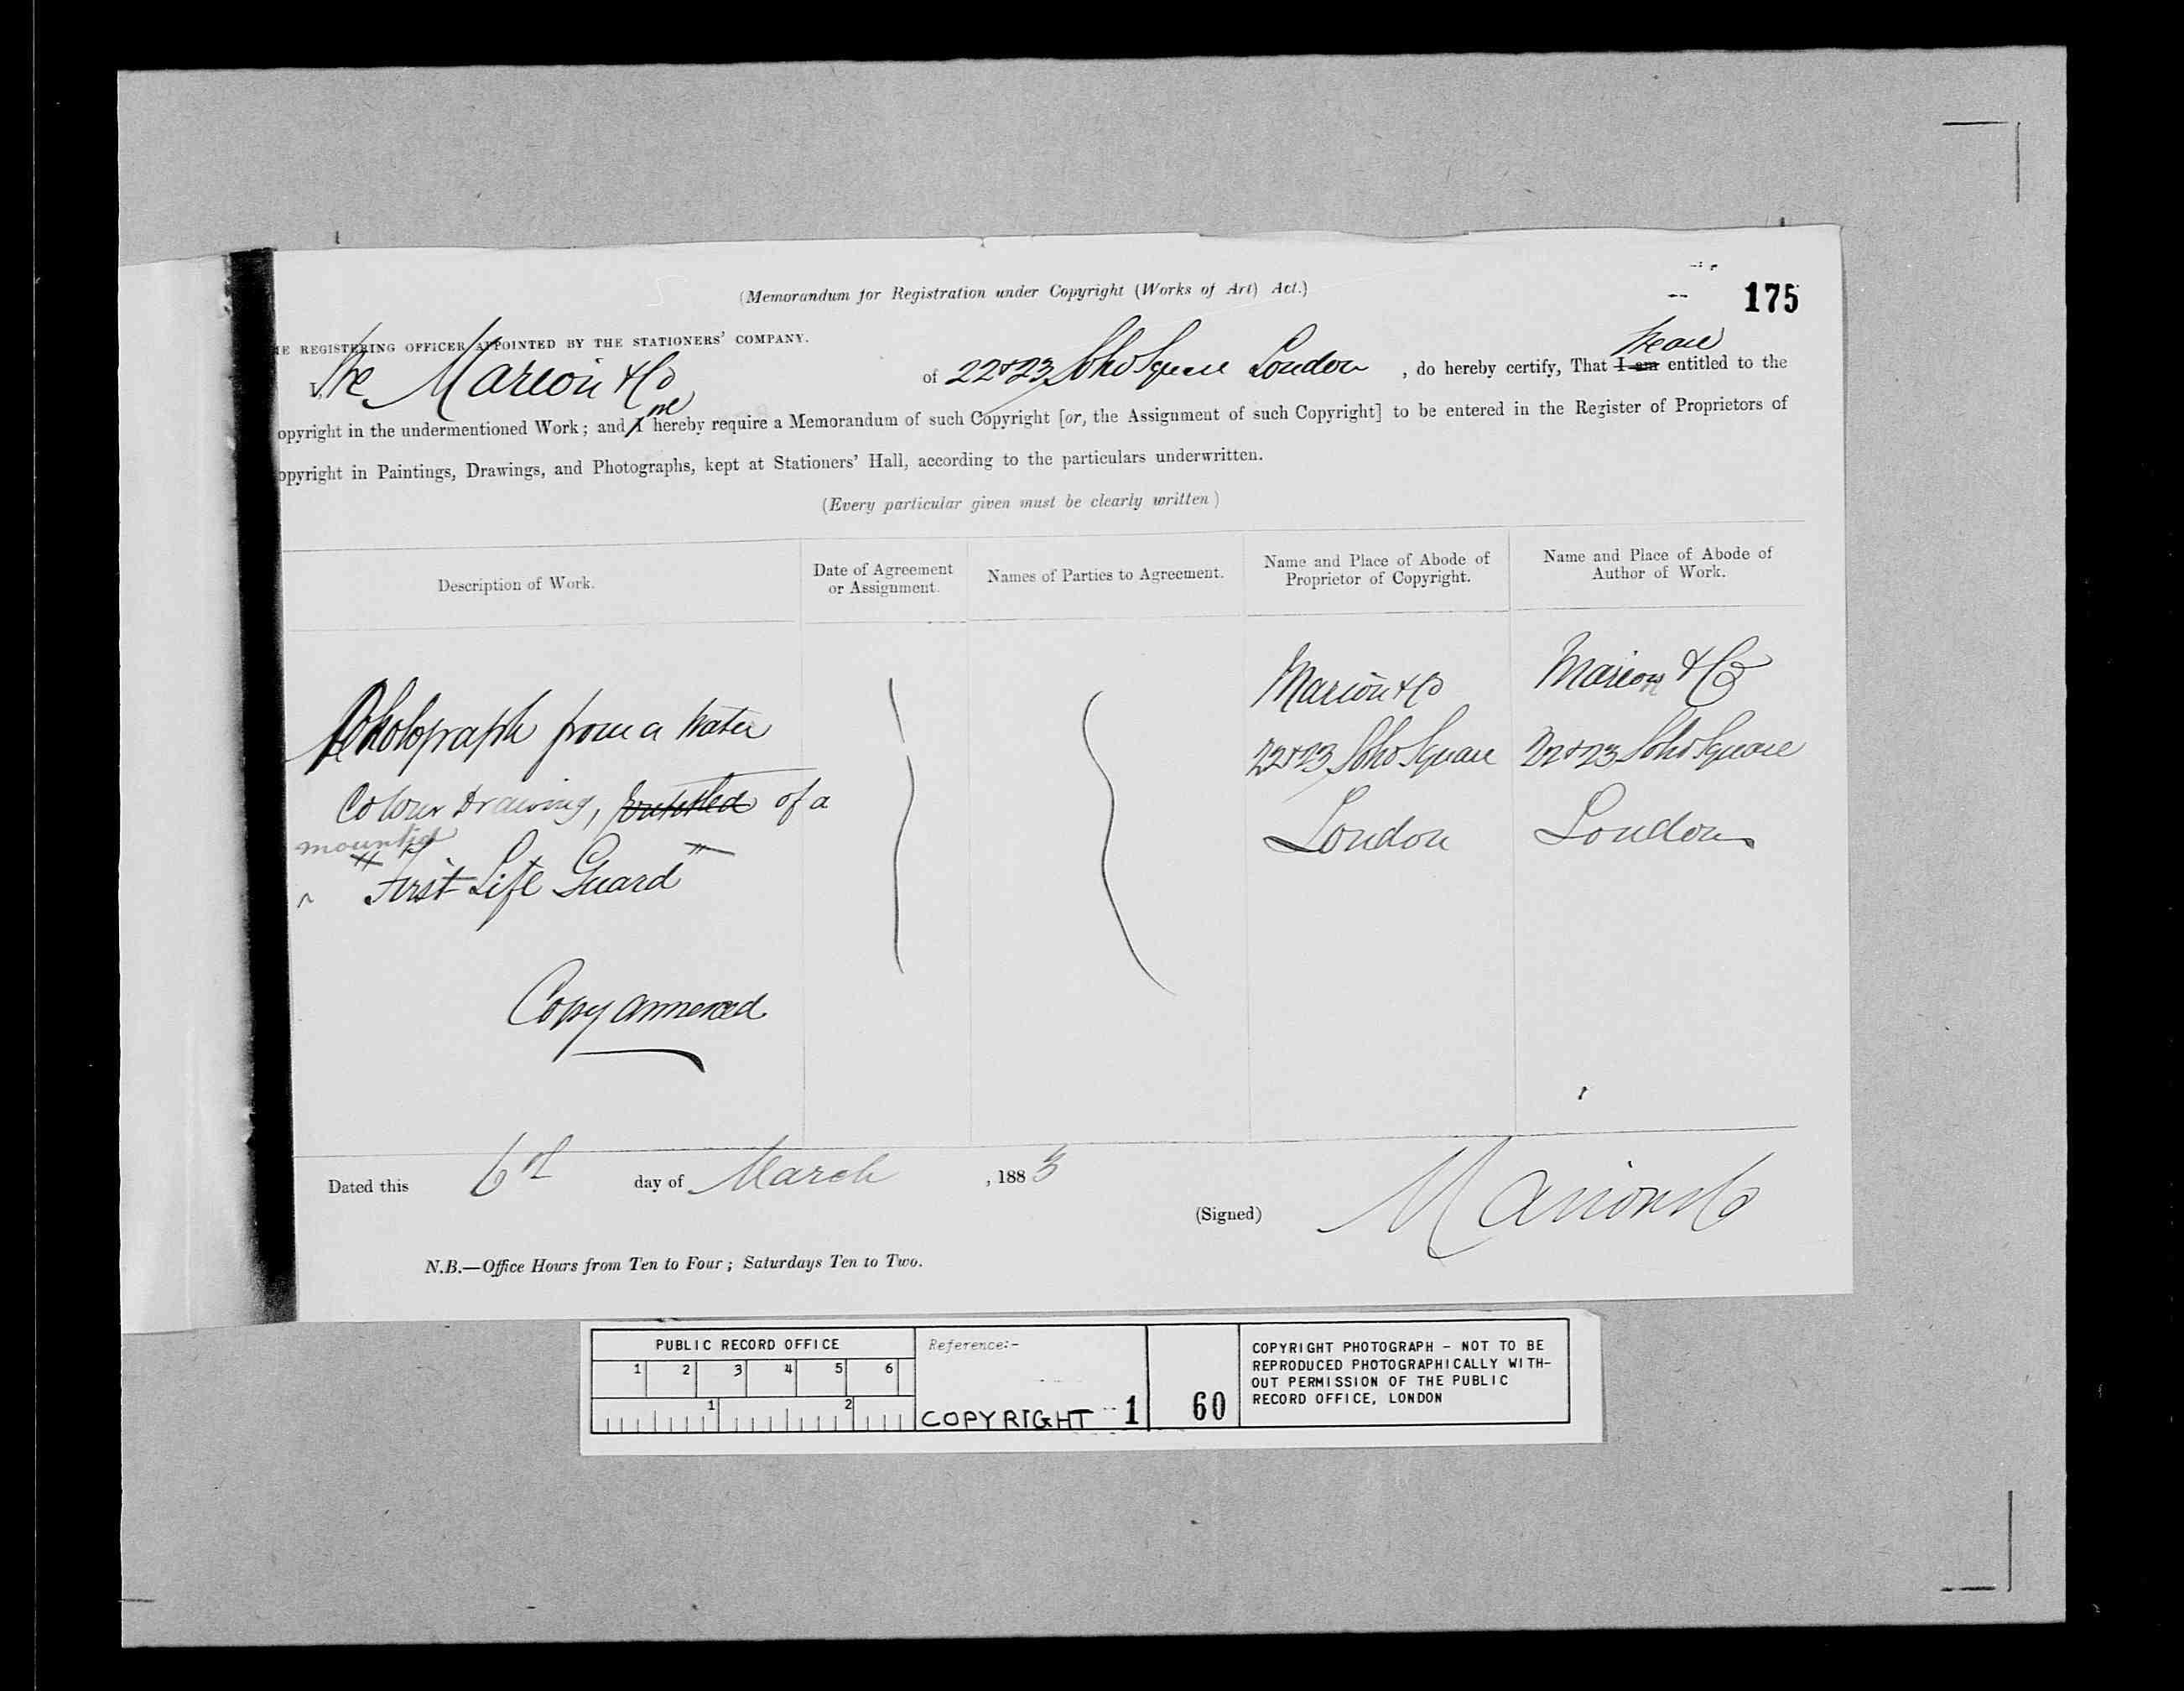 (Memorandum for Registration under Copyright (Works of Art) Act.)
175
HE REGISTERING OFFICER APPOINTED BY THE STATIONERS' COMPANY.
We Marion & Co of 22 & 23 Soho Square London, do hereby certify, That I am We are entitled to the
opyright in the undermentioned Work; and I we hereby require a Memorandum of such Copyright [or, the Assignment of such Copyright] to be entered in the Register of Proprietors of
opyright in Paintings, Drawings, and Photographs, kept at Stationers' Hall, according to the particulars underwritten.
(Every particular given must be clearly written)
Description of Work.
Date of Agreement
or Assignment.
Names of Parties to Agreement.
Name and Place of Abode of
Proprietor of Copyright.
Name and Place of Abode of
Author of Work.
Photograph from a Water
Colour Drawing, entitled of a
mounted
"First Life Guard"
Copy annexed
Marion & Co
22 & 23 Soho Square
London
Marion & Co
22 & 23 Soho Square
London
Dated this 6th day of March, 1883
(Signed) Marion & Co
N.B.—Office Hours from Ten to Four; Saturdays Ten to Two.
PUBLIC RECORD OFFICE
1 2 3 4 5 6
1 2
Reference:-
COPYRIGHT 1 60
COPYRIGHT PHOTOGRAPH - NOT TO BE
REPRODUCED PHOTOGRAPHICALLY WITH-
OUT PERMISSION OF THE PUBLIC
RECORD OFFICE, LONDON